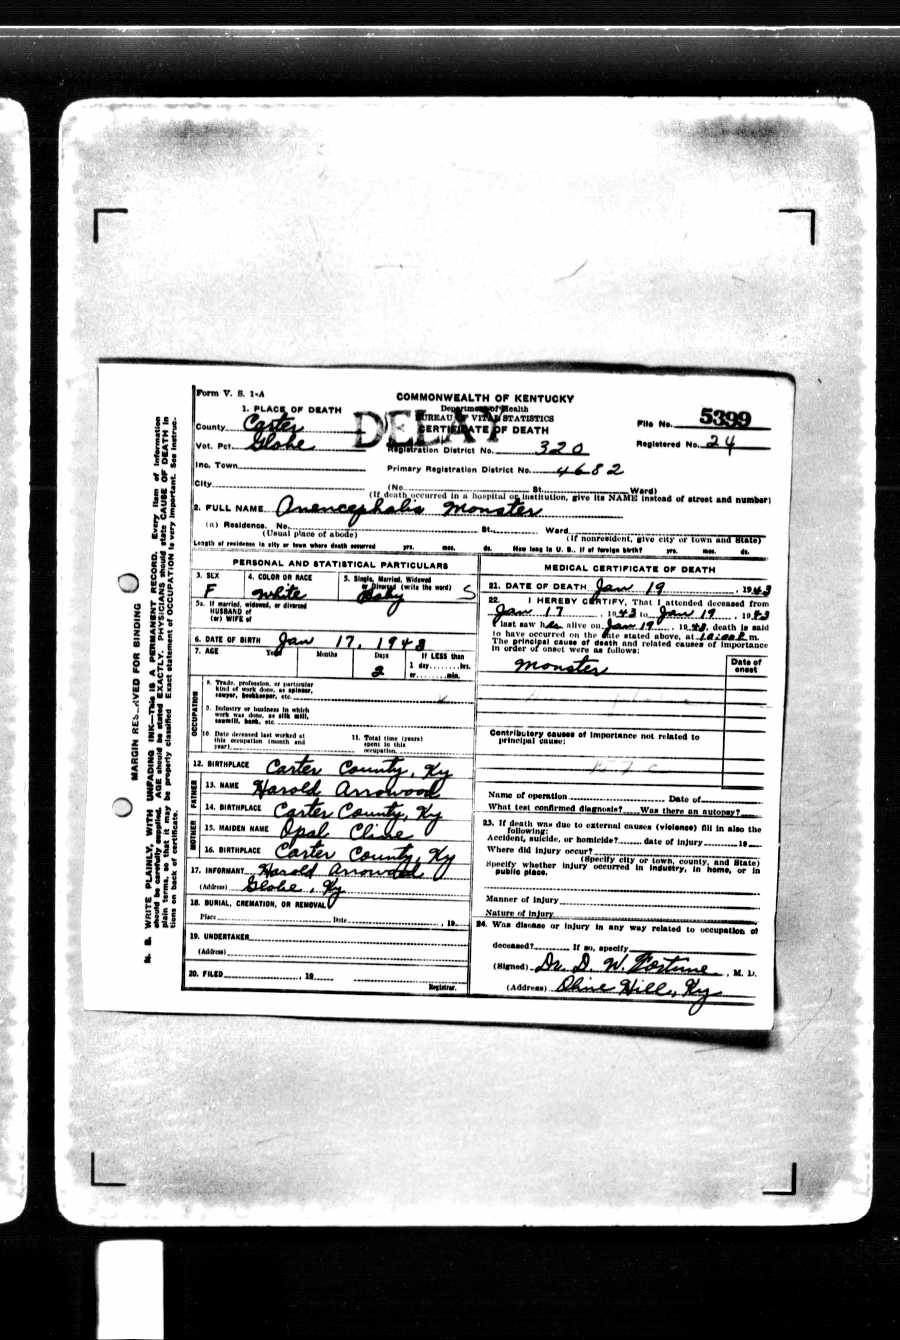 Form V. S. 1-A
COMMONWEALTH OF KENTUCKY
Department of Health
BUREAU OF VITAL STATISTICS
CERTIFICATE OF DEATH
DELAY
File No. 5399
Registered No. 24
1. PLACE OF DEATH
County Carter
Vot. Pct. Globe
Registration District No. 320
Inc. Town
Primary Registration District No. 4682
City (No. St. Ward)
(If death occurred in a hospital or institution, give its NAME instead of street and number)
2. FULL NAME Anencephalis Monster
(a) Residence. No. St. Ward
(Usual place of abode) (If nonresident, give city or town and State)
Length of residence in city or town where death occurred yrs. mos. ds. How long in U. S., if of foreign birth? yrs. mos. ds.
PERSONAL AND STATISTICAL PARTICULARS
3. SEX F
4. COLOR OR RACE White
5. Single, Married, Widowed
or Divorced (write the word)
Baby S
5a. If married, widowed, or divorced
HUSBAND of
(or) WIFE of
6. DATE OF BIRTH Jan 17, 1943
7. AGE Years Months Days If LESS than
2 1 day, hrs.
or min.
OCCUPATION
8. Trade, profession, or particular
kind of work done, as spinner,
sawyer, bookkeeper, etc.
9. Industry or business in which
work was done, as silk mill,
sawmill, bank, etc.
10. Date deceased last worked at
this occupation (month and
year)
11. Total time (years)
spent in this
occupation
12. BIRTHPLACE Carter County, Ky
FATHER
13. NAME Harold Arrowood
14. BIRTHPLACE Carter County, Ky
MOTHER
15. MAIDEN NAME Opal Cline
16. BIRTHPLACE Carter County, Ky
17. INFORMANT Harold Arrowood
(Address) Globe, Ky
18. BURIAL, CREMATION, OR REMOVAL
Place Date , 19
19. UNDERTAKER
(Address)
20. FILED , 19
Registrar.
MEDICAL CERTIFICATE OF DEATH
21. DATE OF DEATH Jan 19 , 1943
22. I HEREBY CERTIFY, That I attended deceased from
Jan 17 , 1943 to Jan 19 , 1943
I last saw her alive on Jan 19 , 1943, death is said
to have occurred on the date stated above, at m.
The principal cause of death and related causes of importance
in order of onset were as follows:
Date of
onset
Monster
Contributory causes of importance not related to
principal cause:
Name of operation Date of
What test confirmed diagnosis? Was there an autopsy?
23. If death was due to external causes (violence) fill in also the
following:
Accident, suicide, or homicide? date of injury 19
Where did injury occur?
(Specify city or town, county, and State)
Specify whether injury occurred in industry, in home, or in
public place.
Manner of injury
Nature of injury
24. Was disease or injury in any way related to occupation of
deceased? If so, specify
(Signed) Dr. D. W. Fortune , M. D.
(Address) Olive Hill, Ky
MARGIN RESERVED FOR BINDING
N. B. WRITE PLAINLY, WITH UNFADING INK—This IS A PERMANENT RECORD. Every item of information
should be carefully supplied. AGE should be stated EXACTLY. PHYSICIANS should state CAUSE OF DEATH in
plain terms, so that it may be properly classified. Exact statement of OCCUPATION is very important. See instruc-
tions on back of certificate.